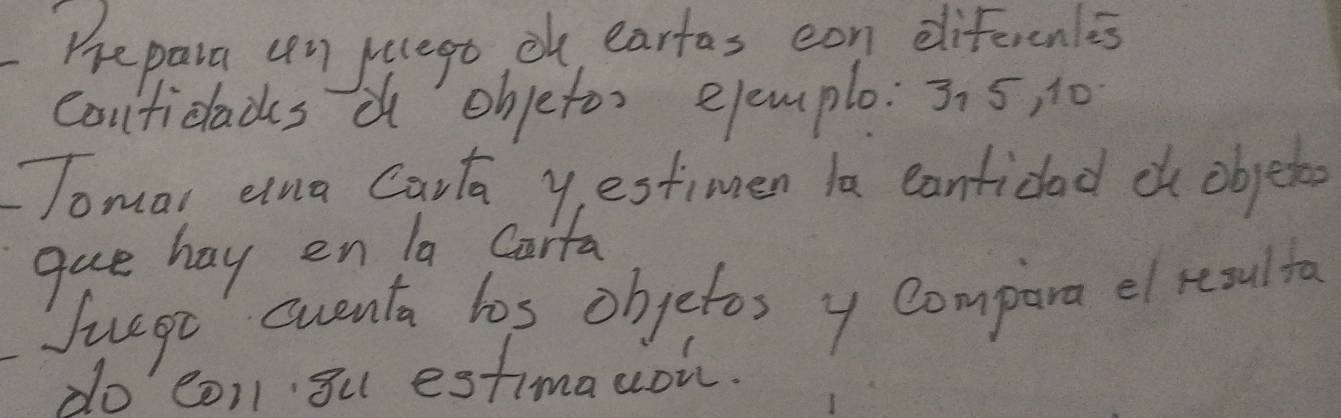 - Prepara un juego de cartas con diferentes
cantidades de objetos ejemplo: 3, 5, 10
- Tomar una carta y estimen la cantidad de objetos
que hay en la carta
- Juego cuenta los objetos y compara el resulta
do con su estimación.